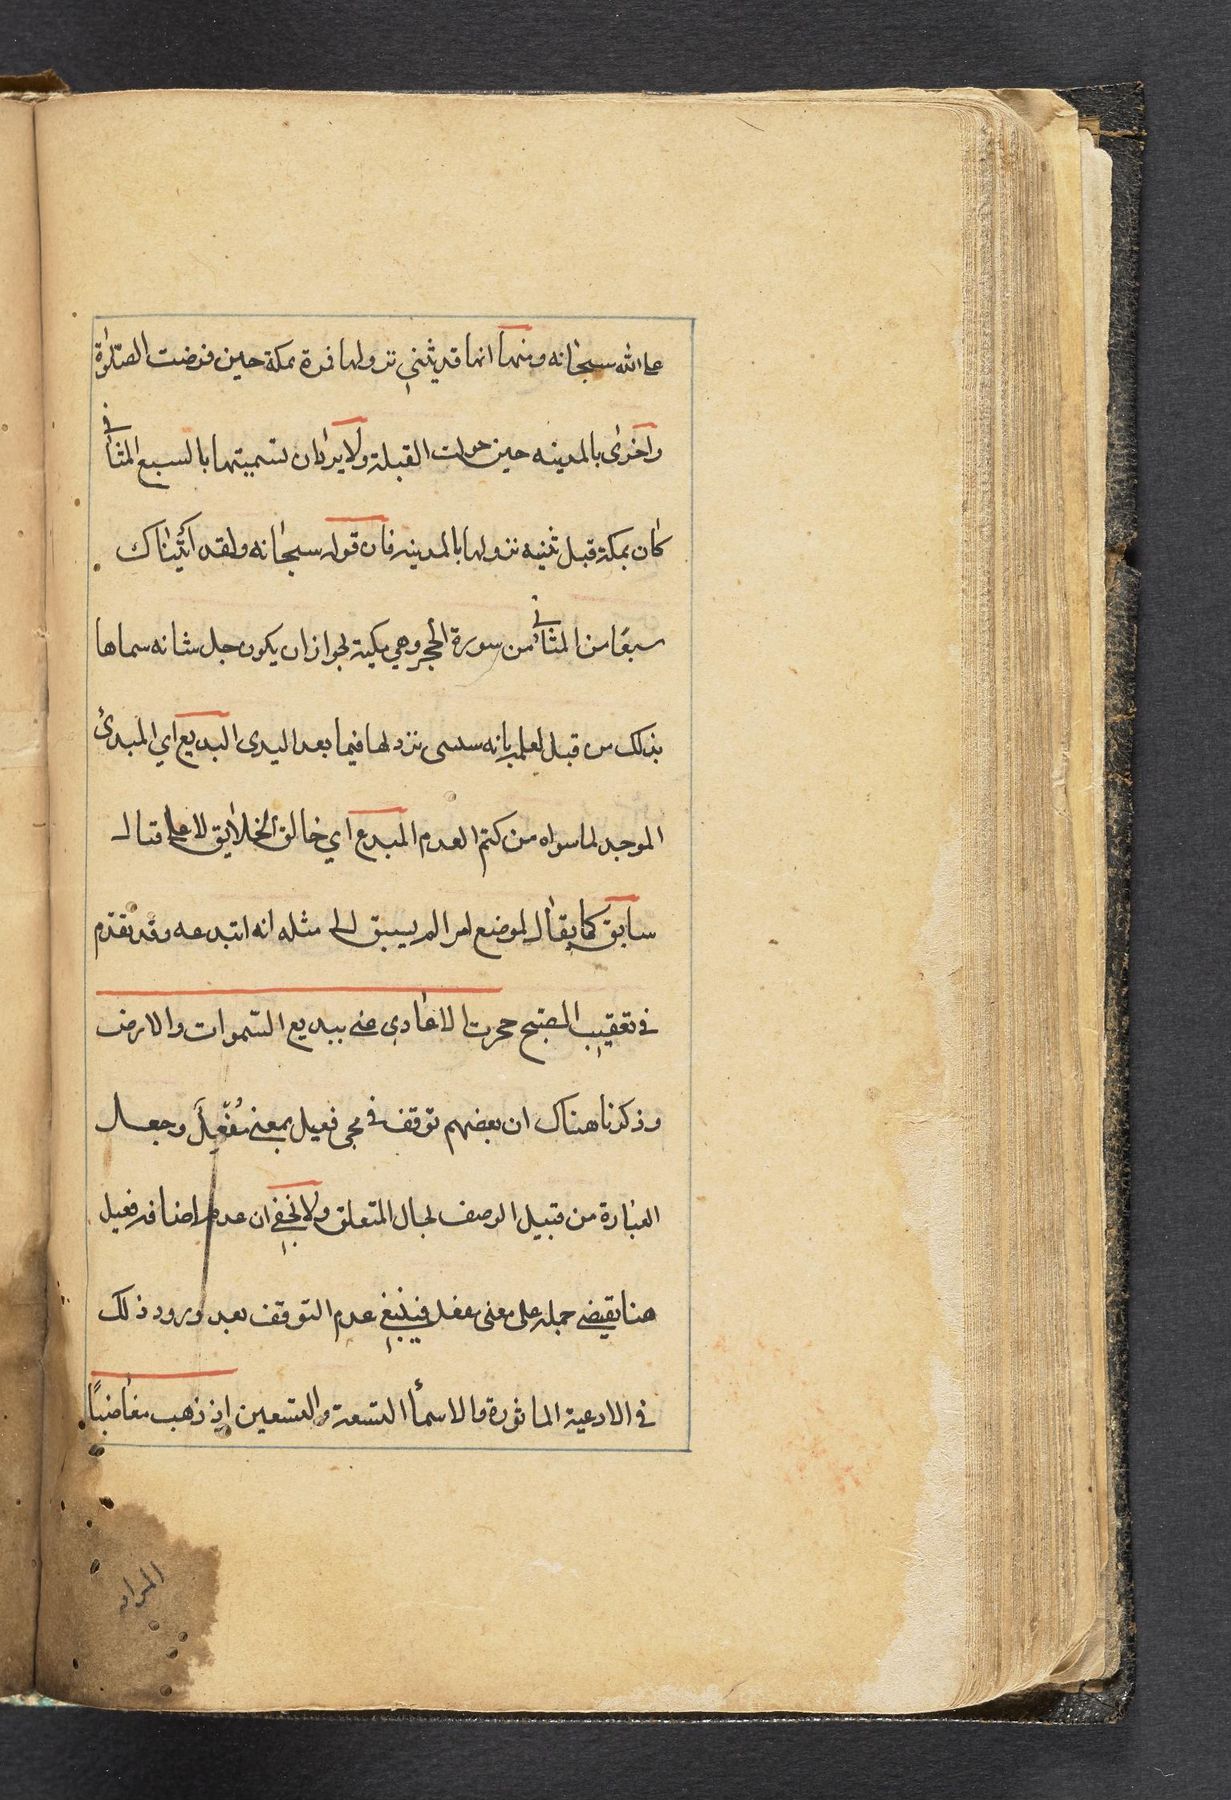 على الله سبحانه ومنها انها قد يثنى نزولها فمرة بمكة حين فرضت الصلوة
واخرى بالمدينه حين حولت القبلة ولا يرد ان تسميتها بالسبع المثانى
كان بمكة قبل تثنيه نزولها بالمدينه فان قوله سبحانه ولقد آتيناك
سبعًا من المثانى من سورة الحجر وهي مكية لجواز ان يكون جل شانه سماها
بذلك من قبل لعلمه بانه سيثنى نزولها فيما بعد البدى البديع اي المبدئ
الموجد لما سواه من كتم العدم المبدع اي خالق الخلايق لا على مثال
سابق كما يقال لموضع امرا لم يسبق الى مثله انه ابتدعه وقد تقدم
في تعقيب الصبح حجرت الاعادي عني ببديع السموات والارض
وذكرنا هناك ان بعضهم توقف في مجى فعيل بمعنى مُفْعِل وجعل
العبارة من قبيل الوصف بحال المتعلق ولا يخفى ان عدم اضافه فعيل
هنا يقتضي حمله على معنى مفعل فينبغي عدم التوقف بعد ورود ذلك
في الادعية الماثورة والاسمأ التسعة والتسعين اذ ذهب مغاضبًا
المراد